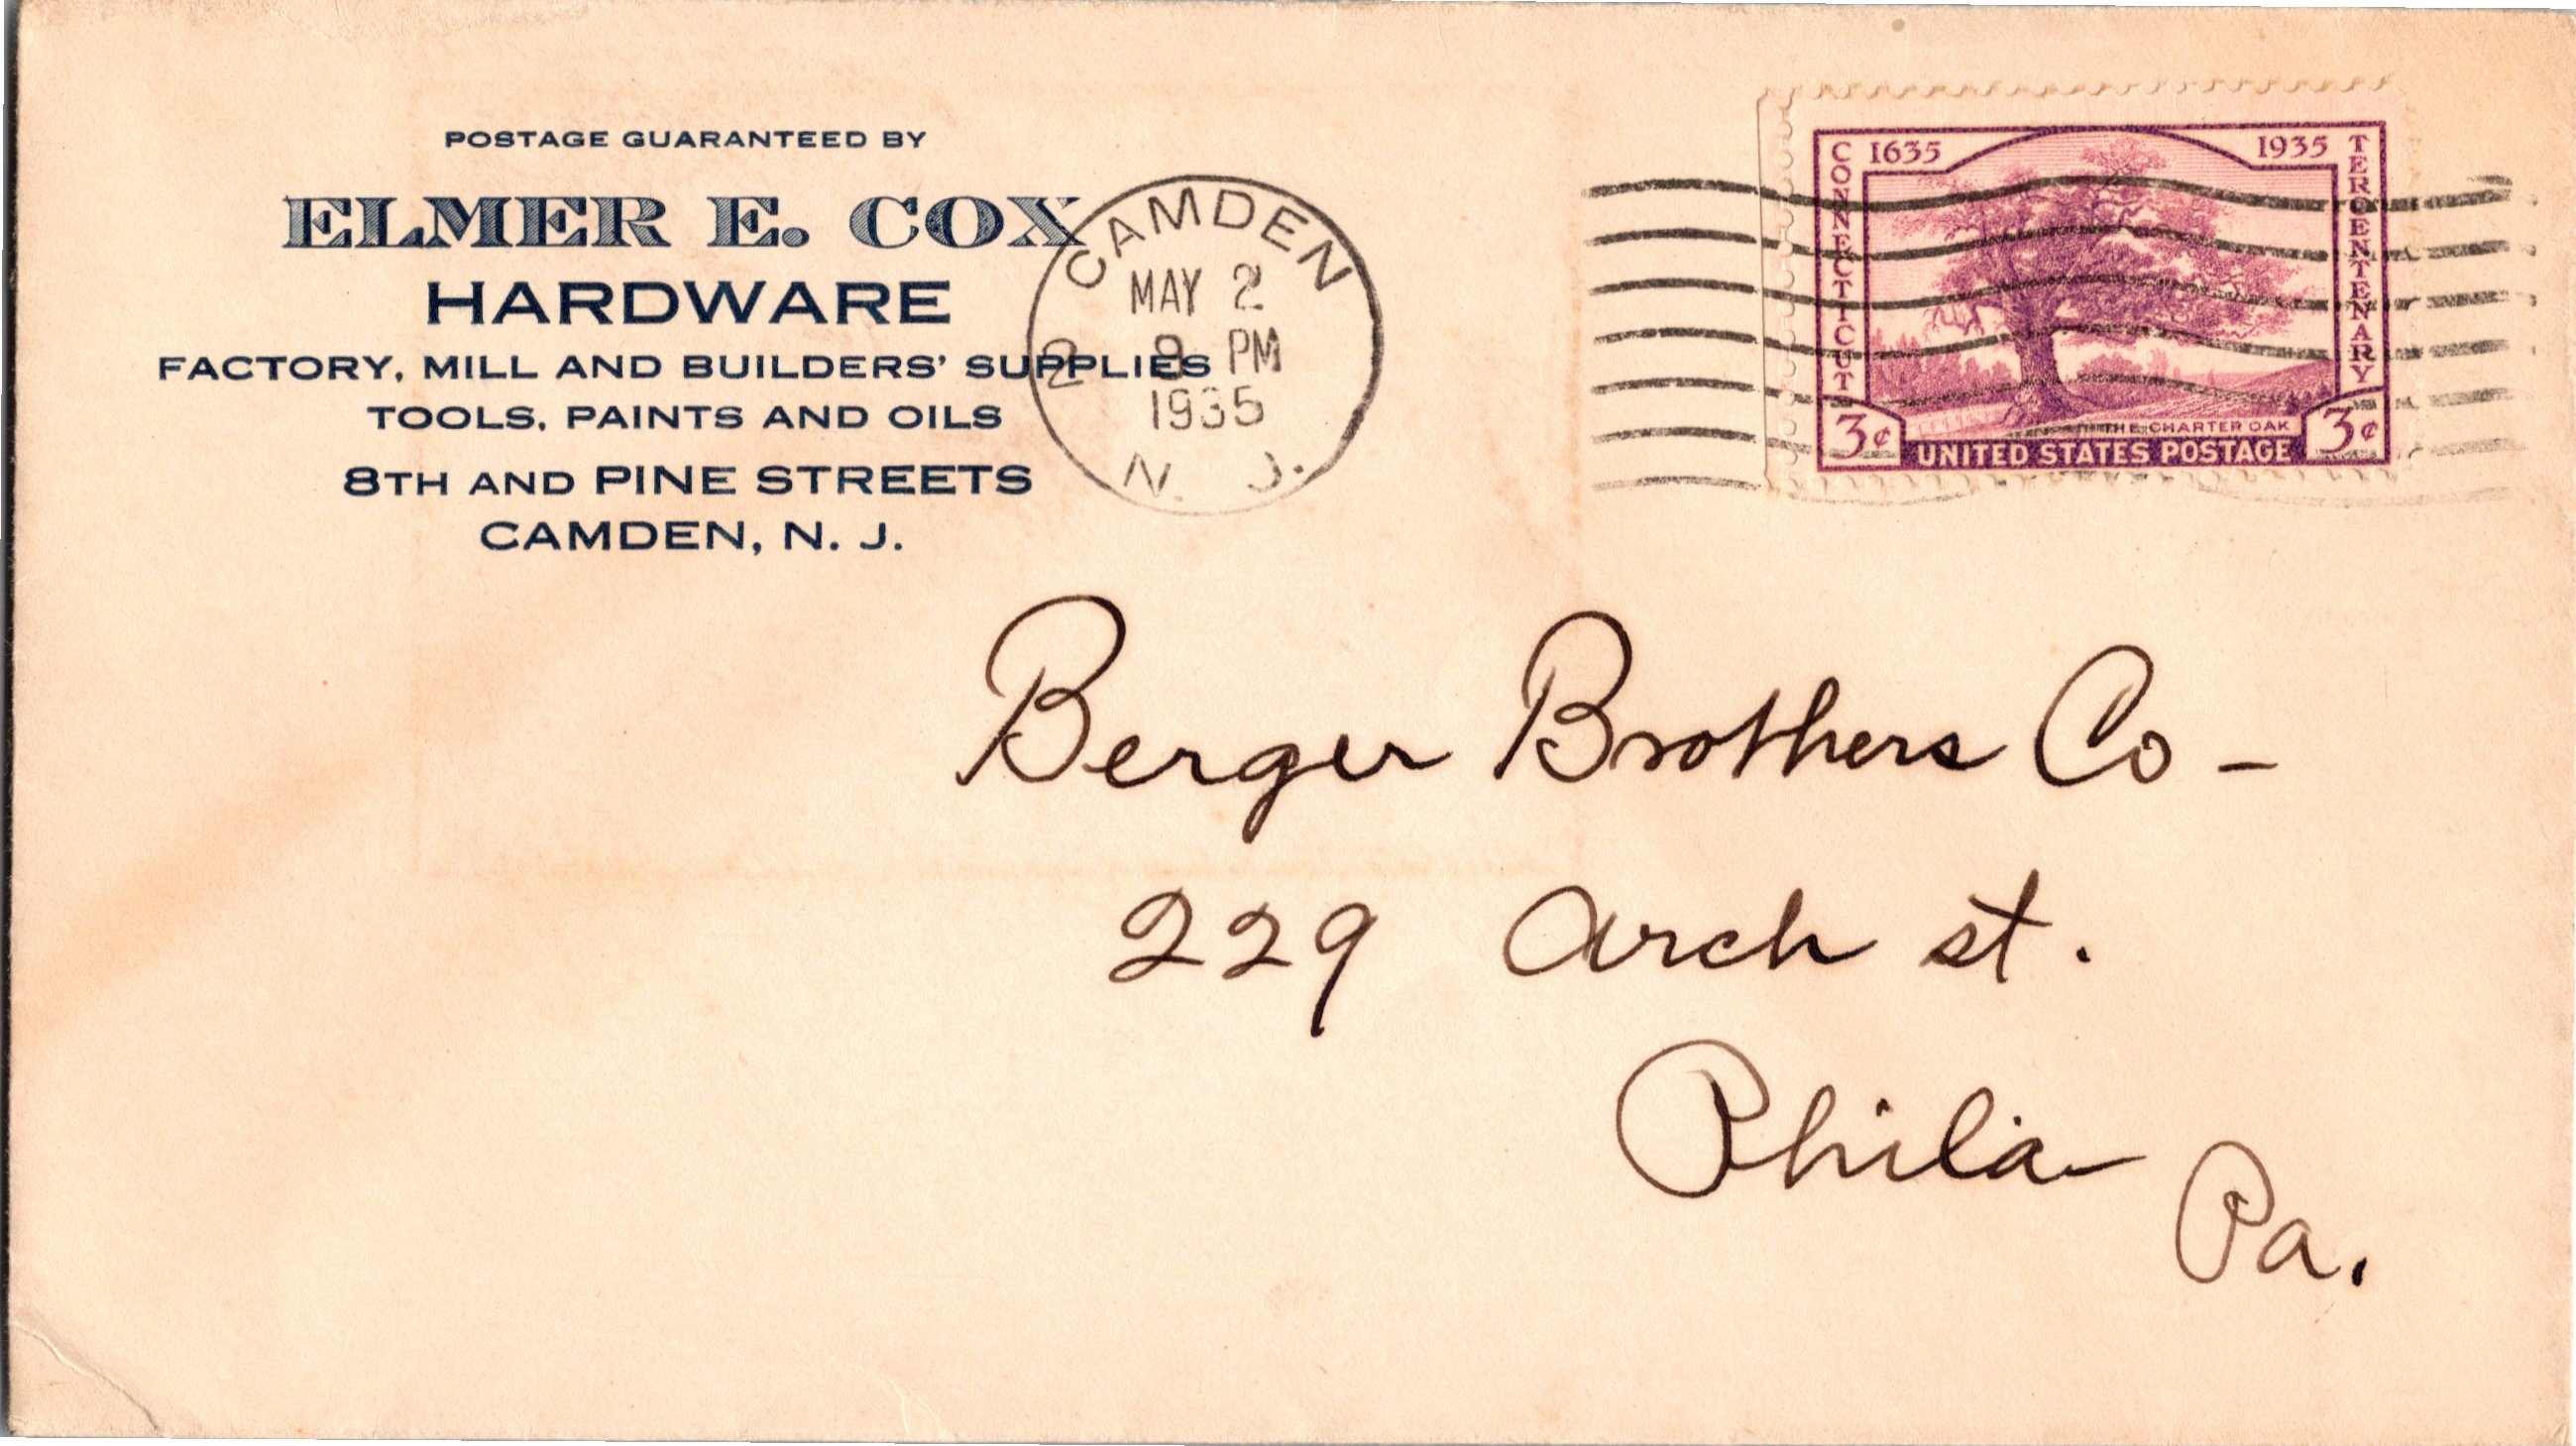 POSTAGE GUARANTEED BY
ELMER E. COX
HARDWARE
FACTORY, MILL AND BUILDERS' SUPPLIES
TOOLS, PAINTS AND OILS
8TH AND PINE STREETS
CAMDEN, N. J.
CAMDEN
MAY 2
PM
1935
N. J.
2
1635 1935
CONNECTICUT
TERCENTENARY
THE CHARTER OAK
3¢ UNITED STATES POSTAGE 3¢
Berger Brothers Co -
229 Arch st.
Phila
Pa.